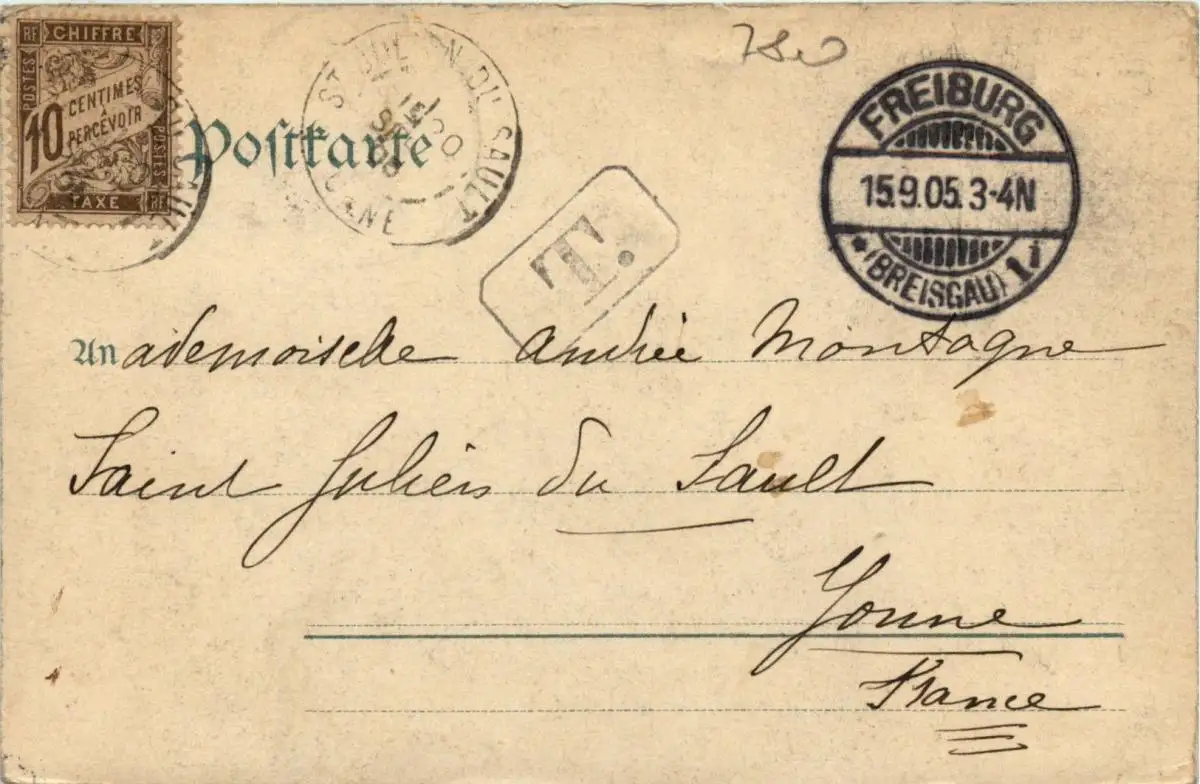 RF CHIFFRE RF
POSTES
10 CENTIMES
À
PERCEVOIR
POSTES
TAXE RF
Postkarte
DU SAULT
T.
FREIBURG
15.9.05.3-4N
* (BREISGAU) 1i
An ademoiselle Andrée Montagne
Saint Julien du Sault
Yonne
France